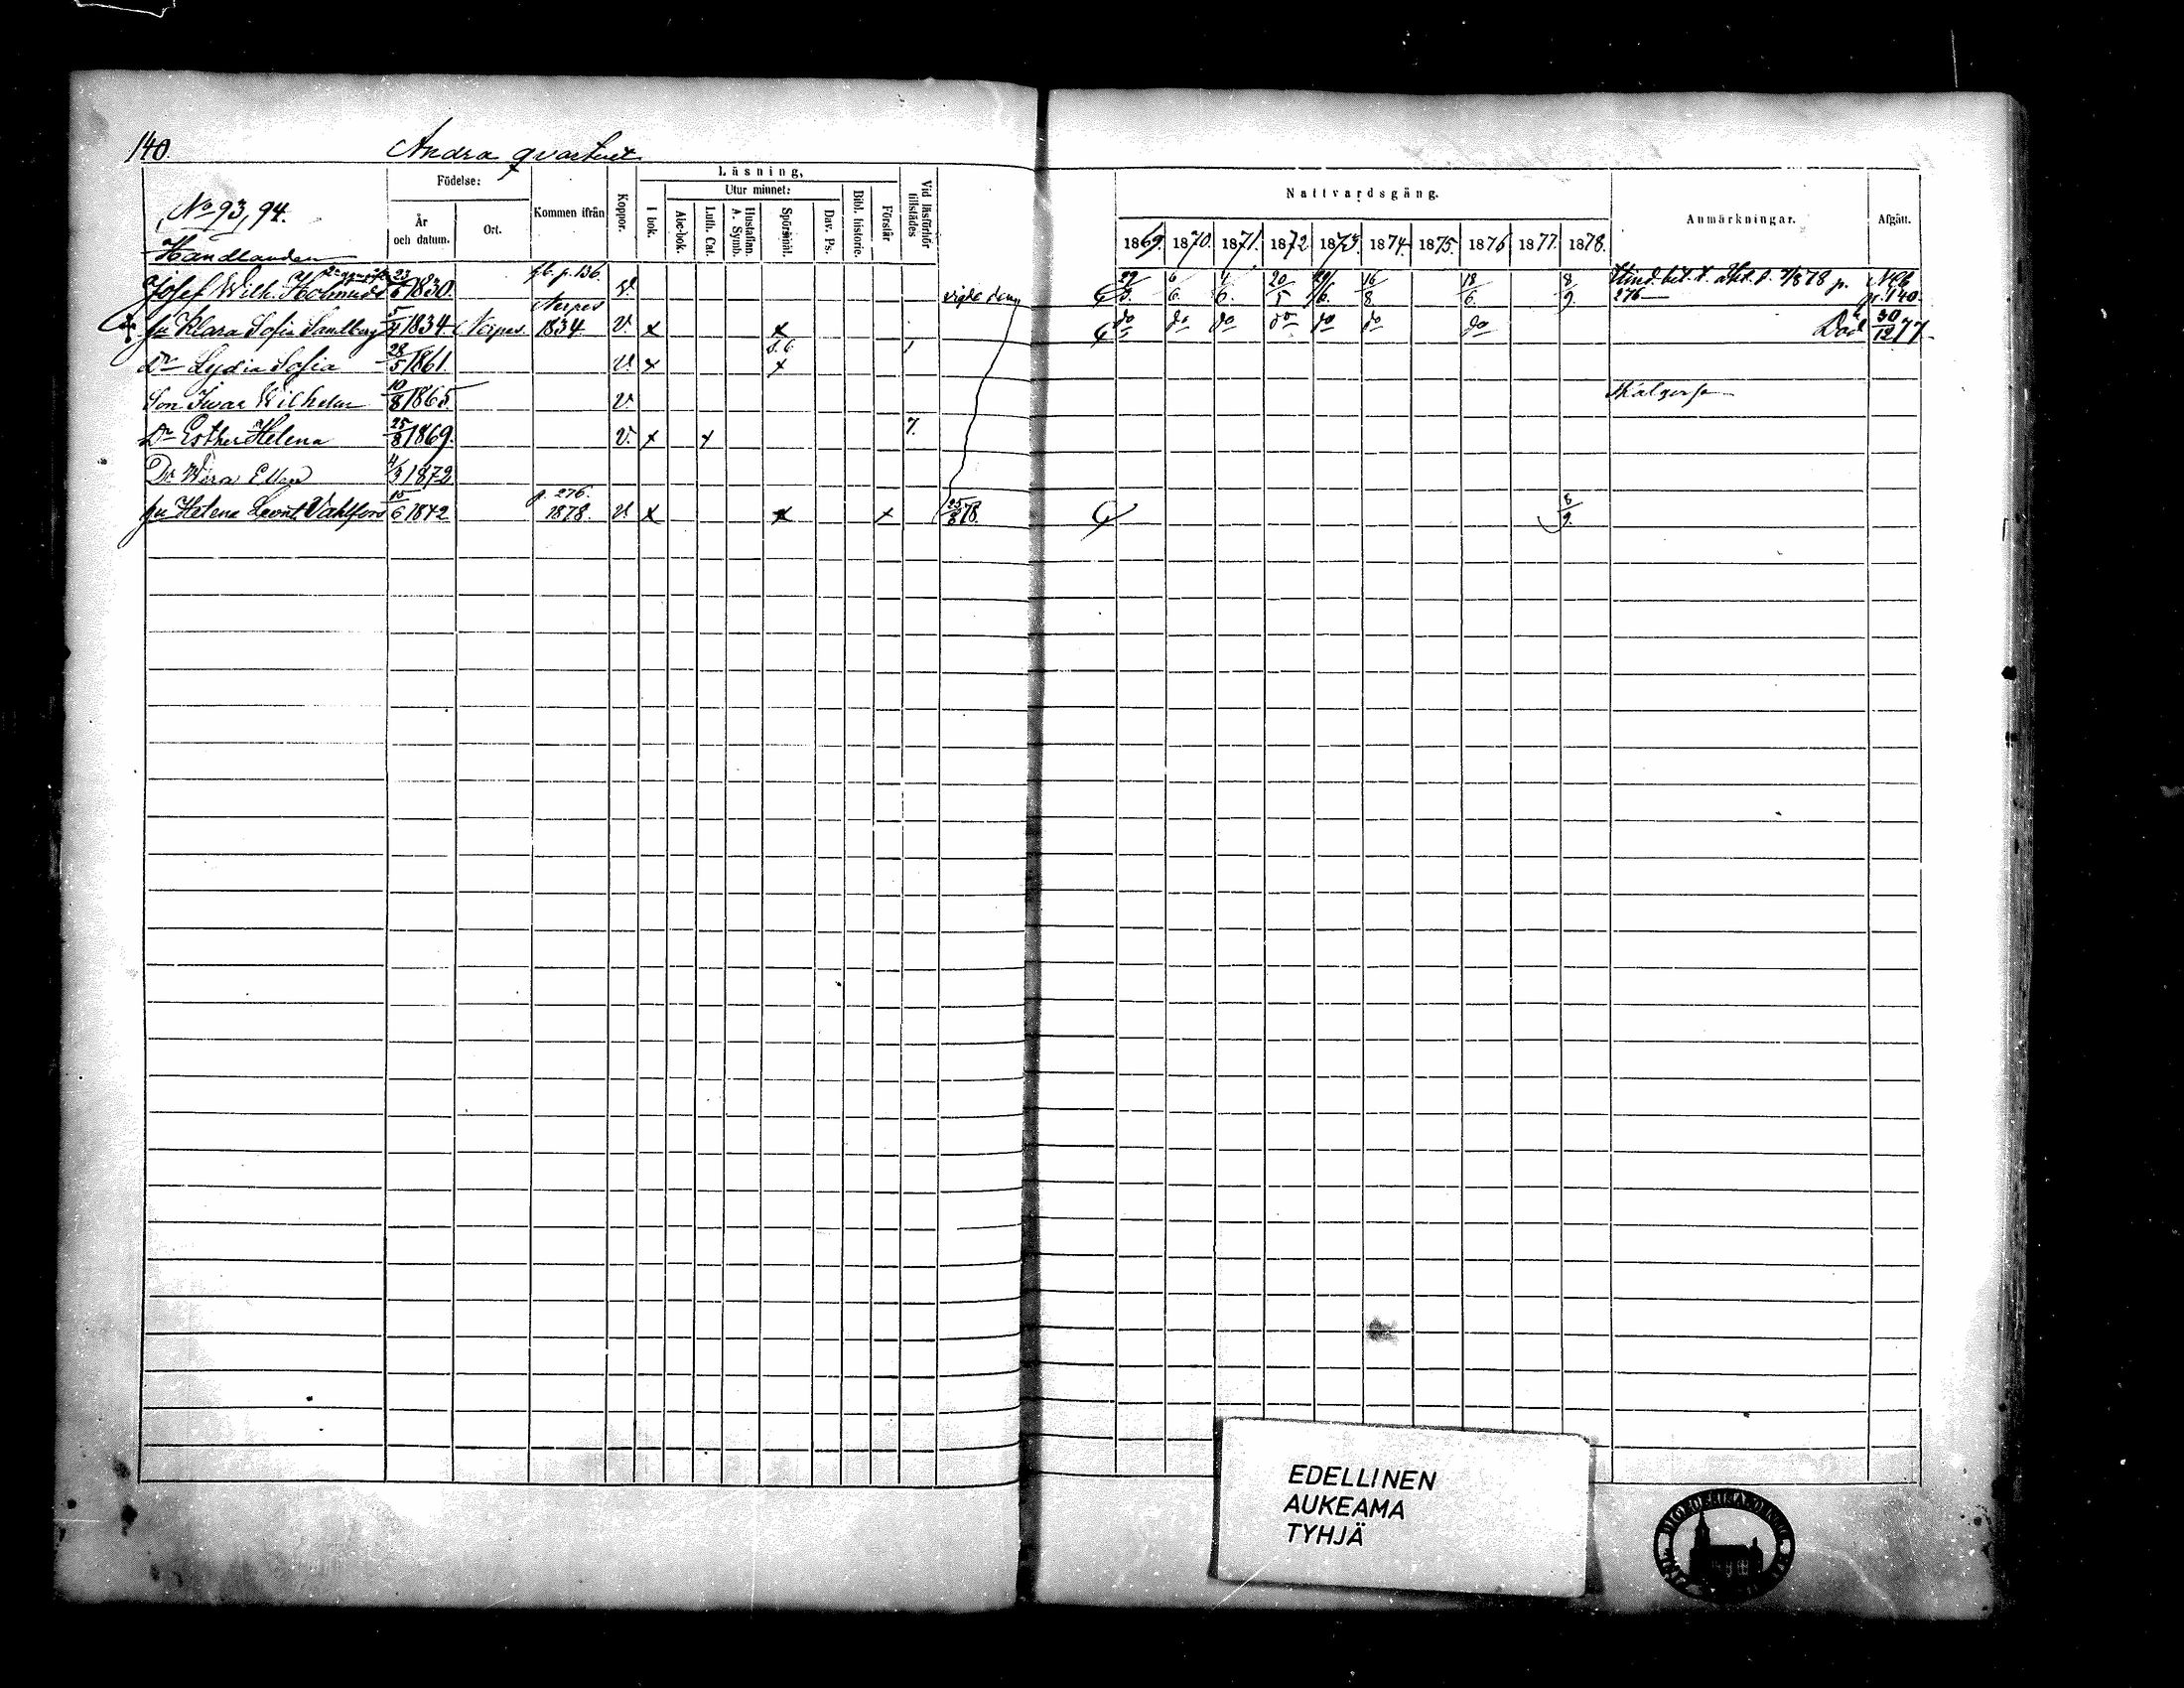 140. Andra qvarteret
No 93, 94.
Födelse:
År och datum.
Ort.
Kommen ifrån
Koppor.
Läsning,
I bok.
Utur minnet:
Abc-bok.
Luth. Cat.
Hustaflan. A. Symb.
Spörsmål.
Dav. Ps.
Bibl. historie.
Förstår
Vid läsförhör tillstädes
Nattvardsgång.
1869. 1870. 1871. 1872 1873. 1874. 1875. 1876 1877. 1878.
Anmärkningar.
Afgått.
Handlanden
Josef Wilh. Holmudd 2a ggn gift 23/6 1830. fb. p. 136. v. vigde den 6/6. 20/5 16/8 18/6. 8/9. p. 276 Nya p. 140.
hu Klara Sofia Sandberg 5/4 1834. Nerpes. Nerpes 1834. v. x x do do do do do do do Död 30/12 77.
Dr Lydia Sofia 28/5 1861. v. x x
Son Iwar Wilhelm 10/8 1865. v.
Dr Esther Helena 25/8 1869. v. x x 7.
Dr Wera Ellen 4/3 1872
hu Helena Leont. Vahlfors 15/6 1842 p. 276. 1878. v x x x 25/8 78. 8/9.
EDELLINEN
AUKEAMA
TYHJÄ